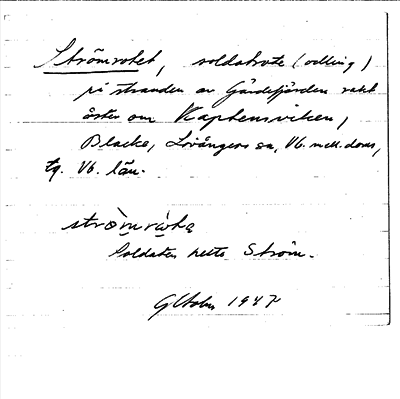 Strömrotet, soldatrote (odling)
på stranden av Gärdefjärden rakt
öster om Kaptensviken,
Blacke, Lövångers sn, Vb. mell. doms,
tg. Vb. län.
Soldaten hette Ström.
G Holm 1947